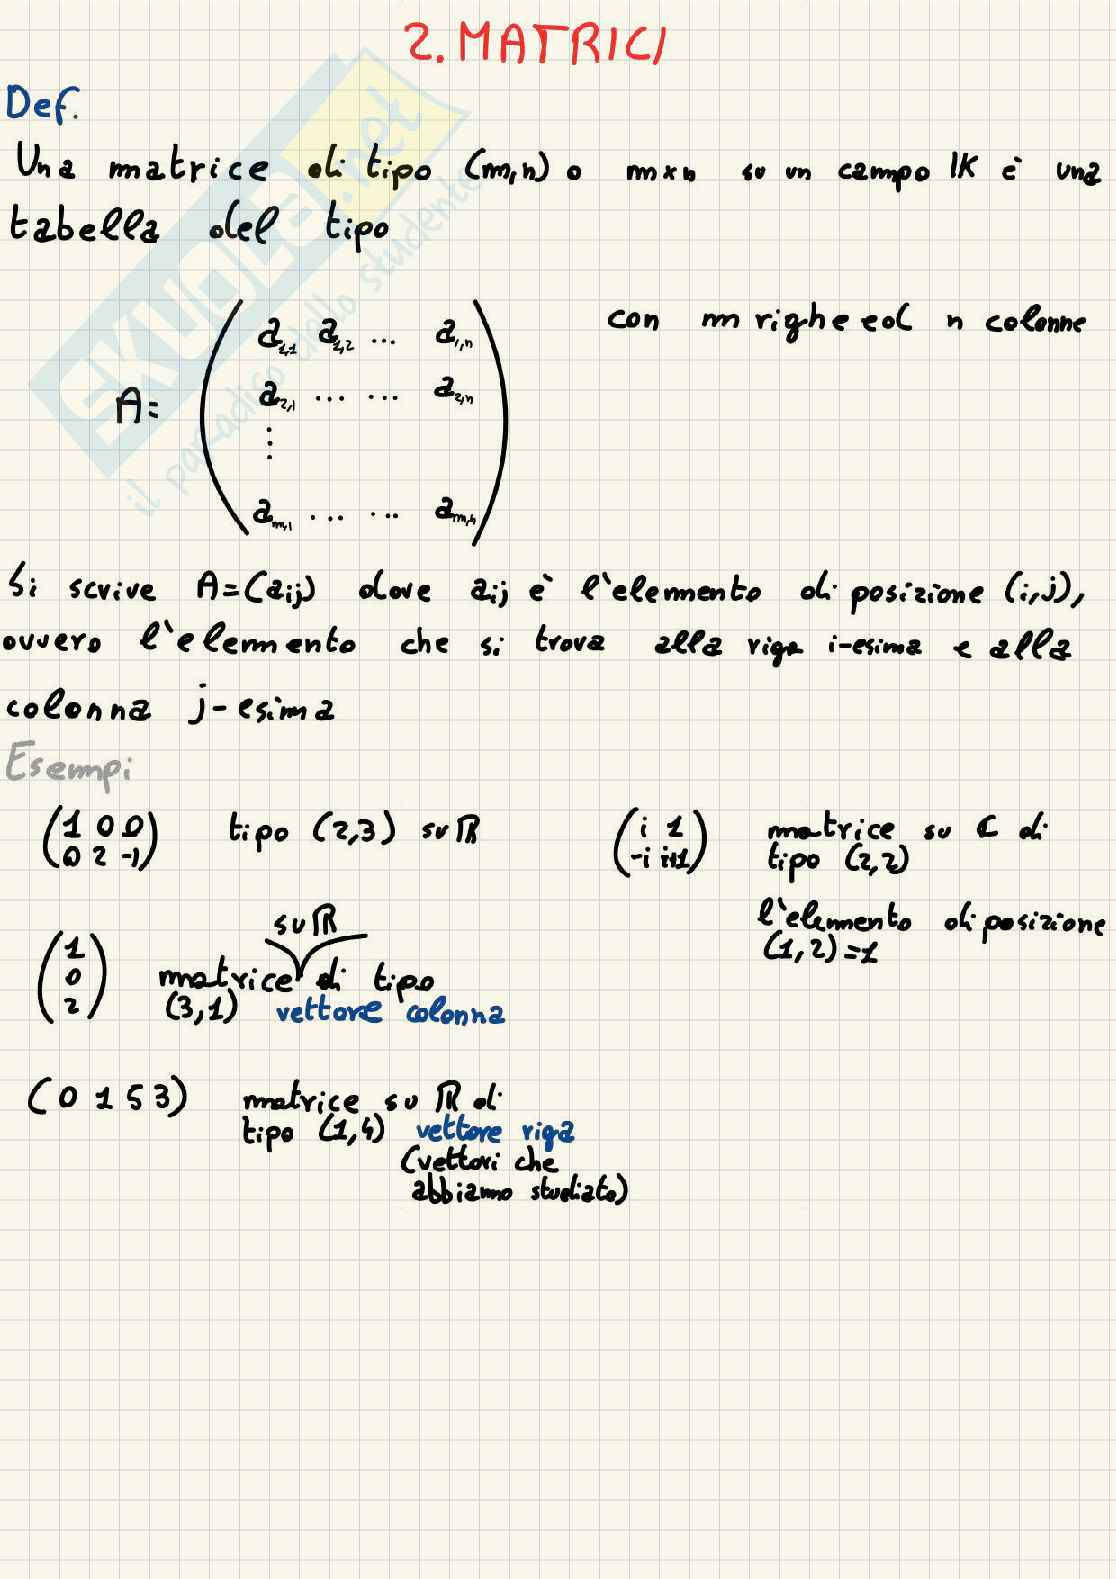 2. MATRICI
Def.
Una matrice di tipo (m,n) o m×n su un campo K è una
tabella del tipo
a₁,₁ a₁,₂ ... a₁,ₙ
con m righe ed n colonne
A= a₂,₁ ... ... a₂,ₙ
⋮
aₘ,₁ ... ... aₘ,ₙ
Si scrive A=(aij) dove aij è l'elemento di posizione (i,j),
ovvero l'elemento che si trova alla riga i-esima e alla
colonna j-esima
Esempi
(1 0 0
0 2 -1)
tipo (2,3) su ℝ
(i 1
-i i+1)
matrice su ℂ di
tipo (2,2)
l'elemento di posizione
(1,2)=1
(1
0
2)
su ℝ
matrice di tipo
(3,1) vettore colonna
(0 1 5 3)
matrice su ℝ di
tipo (1,4) vettore riga
(vettori che
abbiamo studiato)
SKUOLA.net
il paradiso dello studente